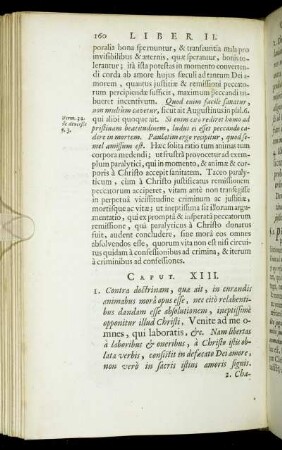 160 LIBER II.
poralia bona spernuntur, & transitura malo pro
invisibilibus & æternis, quæ sperantur, boni tolerantur; ità ista potestas in momento convertendi corda ab amore hujus sæculi ad tantum Dei amorem, quætus justitiæ & remissioni peccatorum percipiendæ sufficit, maximum peccandi tribueret incentivum. Quod enim facile sanatur,
non multùm cavetur, sicut ait Augustinus in psal. 6.
qui alibi quoque ait. Si enim citò rediret homo ad
pristinam beatitudinem, ludus ei esset peccando cadere in mortem.
Hæc solita ratio tum animas tum
corpora medendi; ut frustrà provocetur ad exemplum paralytici, qui in momento, & animæ & corporis à Christo accepit sanitatem. Taceo paralyticum, cùm à Christo justificatus remissionem
peccatorum acciperet, vitam antè non transegisse
in perpetua vicissitudine criminum ac justitiæ,
mortisque ac vitæ: ut ineptissima sit illorum argumentatio, qui ex prompta & insperatâ peccatorum
remissione, quâ paralyticus à Christo donatus
fuit, audent concludere, sine morâ eos omnes
absolvendos esse, quorum vita non est nisi circuitus quidam à confessionibus ad crimina, & iterum
à criminibus ad confessiones.
CAPUT. XIII.
1. Contra doctrinam, quæ ait, in curandis
animabus morâ opus esse, nec citò relabentibus dandam esse absolutionem, ineptissimè
opponitur illud Christi, Venite ad me omnes, qui laboratis, &c. Nam libertas
à laboribus & oneribus, à Christo istic oblata verbis, consistit in defæcato Dei amore,
non verò in sacris istius amoris signis.
2. Cha-